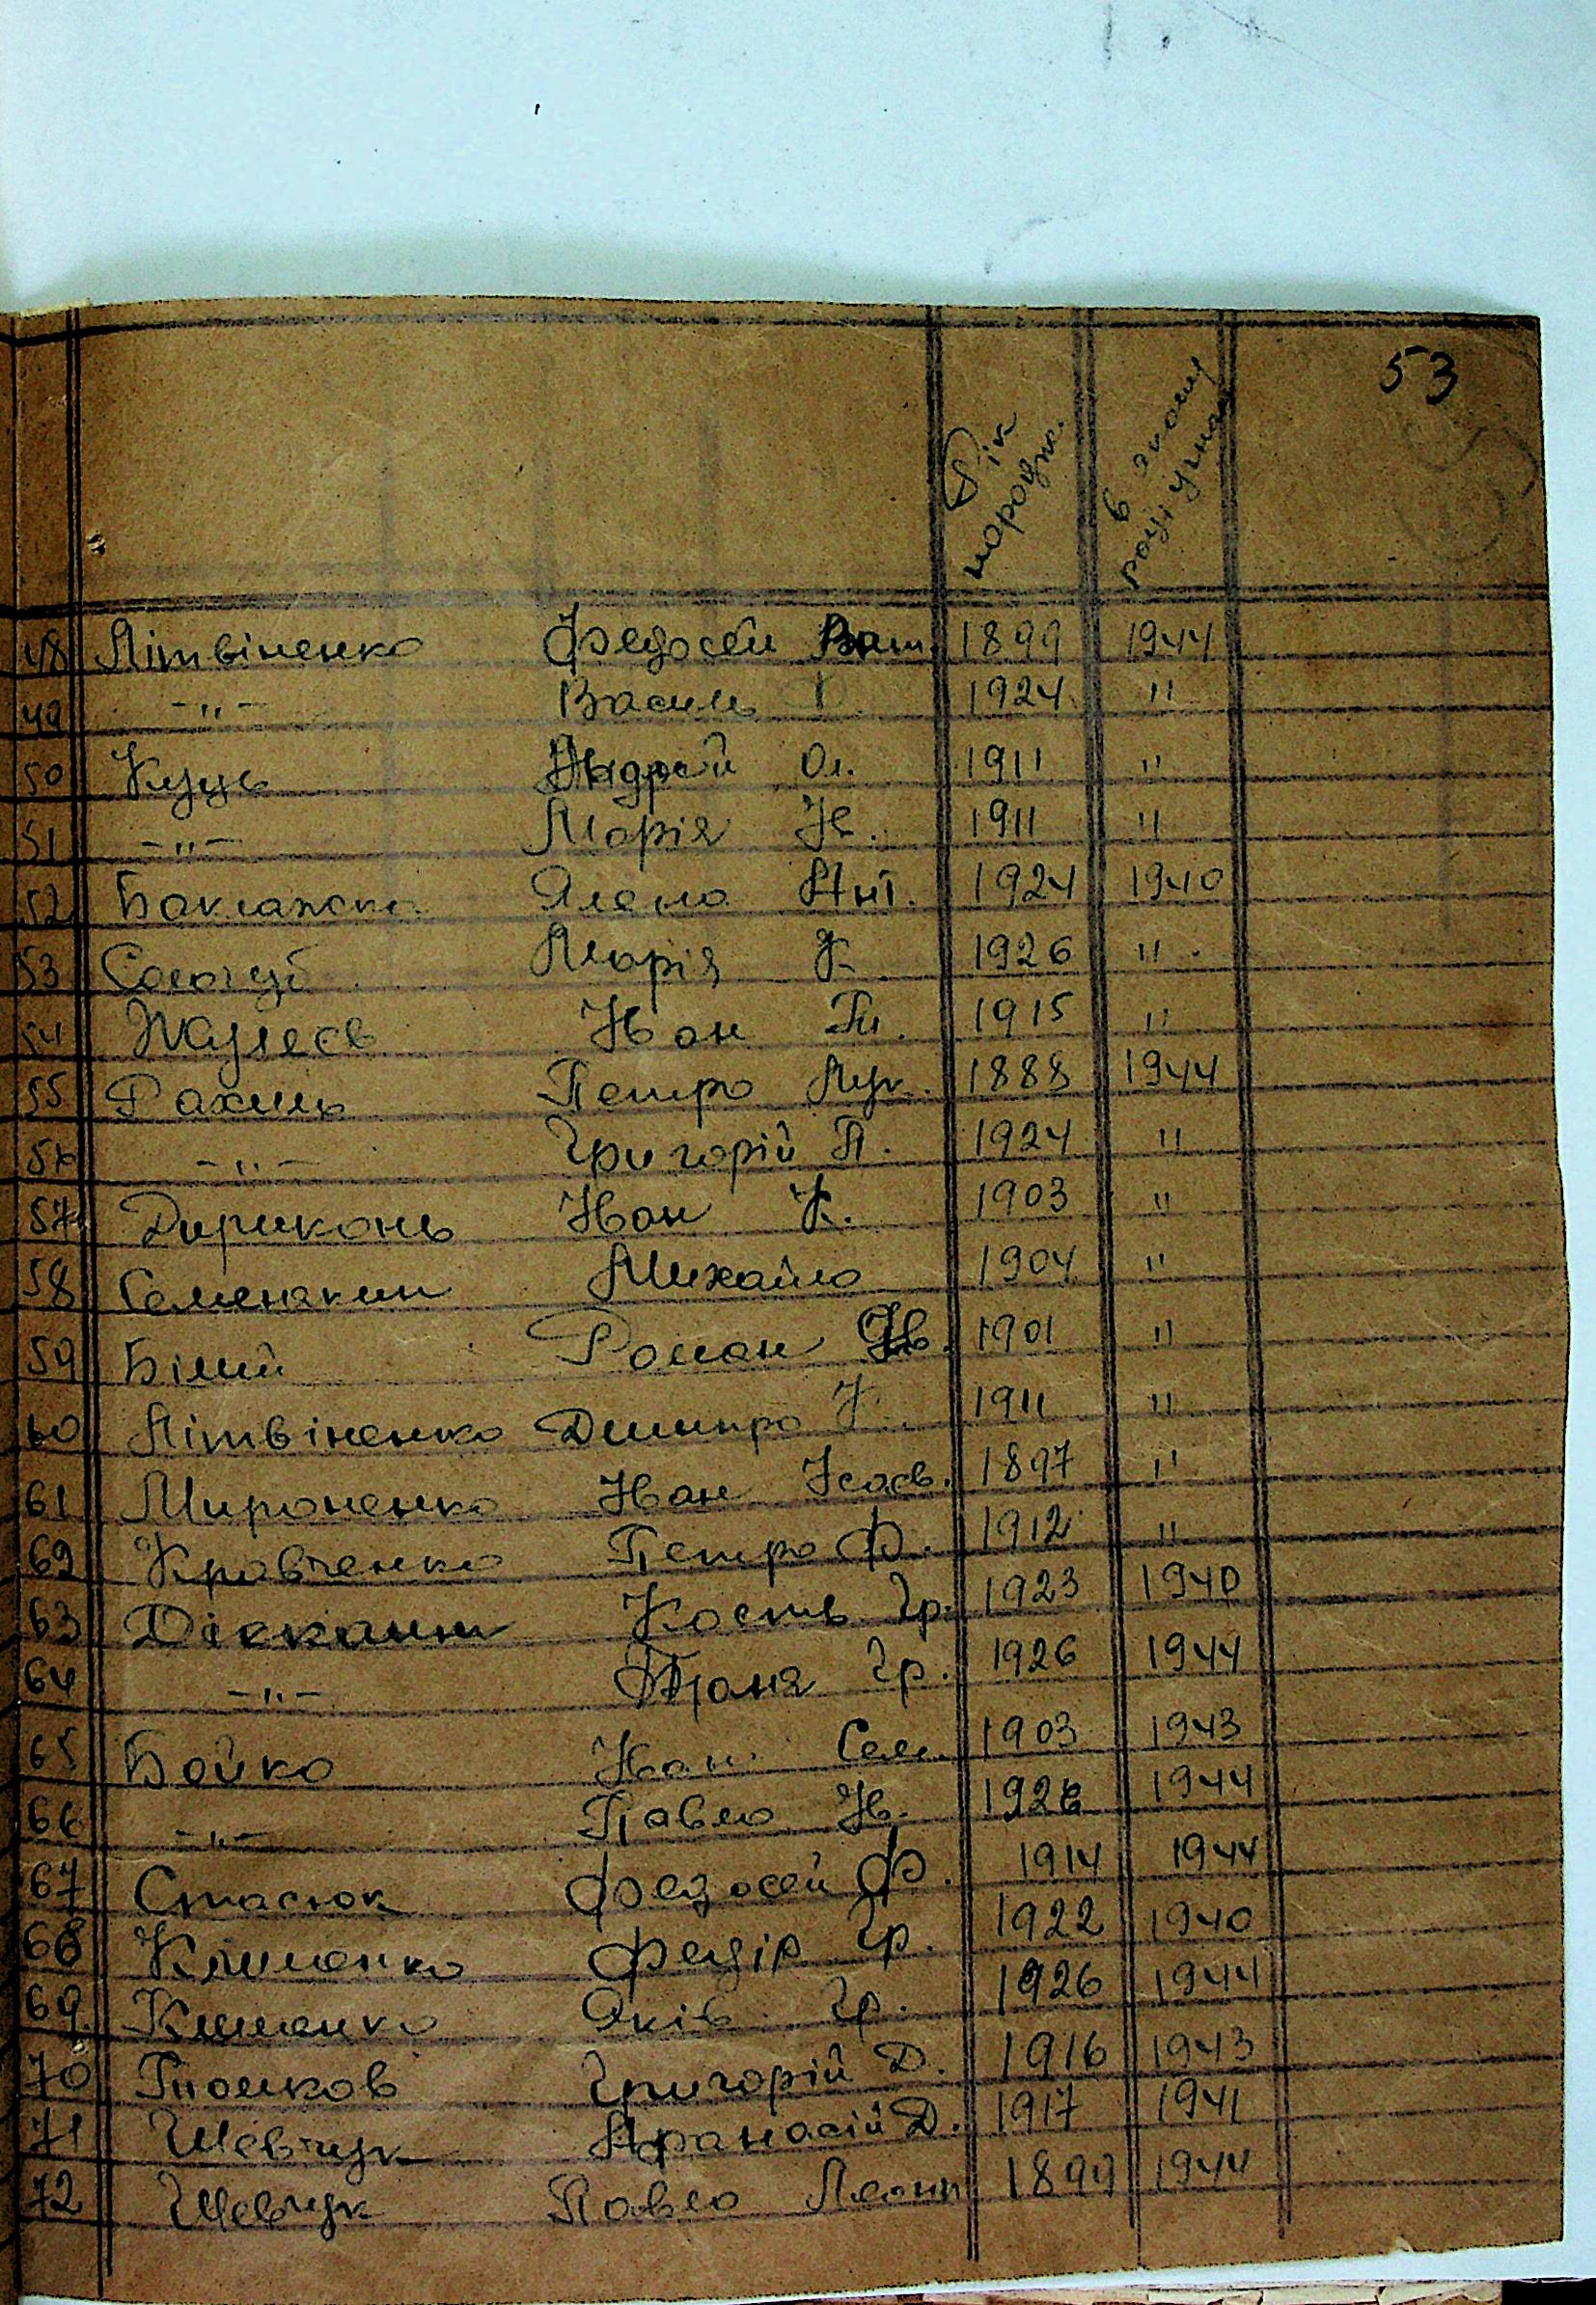 53
Рік народж.
в якому році угнан
48 Літвіненко Федосей 1899 1944
49 -"- Василь 1924 "
50 Куць Андрей Ол. 1911 "
51 -"- Марія Ів. 1911 "
52 Ант. 1924 1940
53 Сологуб Марія К. 1926 "
54 Іван 1915 "
55 Рахиль Петро Лук. 1888 1944
56 -"- Григорій П. 1924 "
57 Дириконь Іван К. 1903 "
58 Семенякин Михайло 1904 "
59 Білий Роман Ів. 1901 "
60 Літвіненко Дмитро 1911 "
61 Мироненко Іван 1897 "
62 Кравченко Петро Ф. 1912 "
63 Діскант Кость Гр. 1923 1940
64 -"- Гр. 1926 1944
65 Бойко Іван Сем. 1903 1943
66 -"- Павло Ів. 1926 1944
67 Стасюк Федосей Ф. 1914 1944
68 Кліманко Федір Гр. 1922 1940
69 Климанко Яків Гр. 1926 1944
70 Григорій Д. 1916 1943
71 Шевчук Афанасій Д. 1917 1941
72 Шевчук Павло 1899 1944